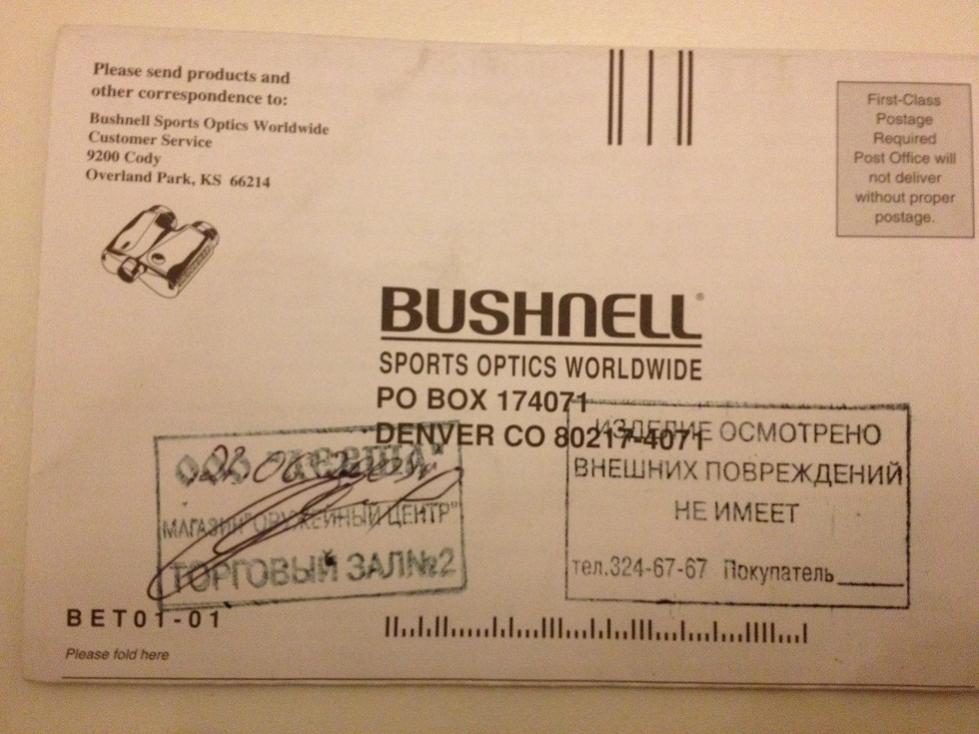 Please send products and
other correspondence to:
Bushnell Sports Optics Worldwide
Customer Service
9200 Cody
Overland Park, KS 66214
First-Class
Postage
Required
Post Office will
not deliver
without proper
postage.
BUSHNELL®
SPORTS OPTICS WORLDWIDE
PO BOX 174071
DENVER CO 80217-4071
ООО
МАГАЗИН "ОРУЖЕЙНЫЙ ЦЕНТР"
ТОРГОВЫЙ ЗАЛ№2
ИЗДЕЛИЕ ОСМОТРЕНО
ВНЕШНИХ ПОВРЕЖДЕНИЙ
НЕ ИМЕЕТ
тел.324-67-67 Покупатель
BET01-01
Please fold here